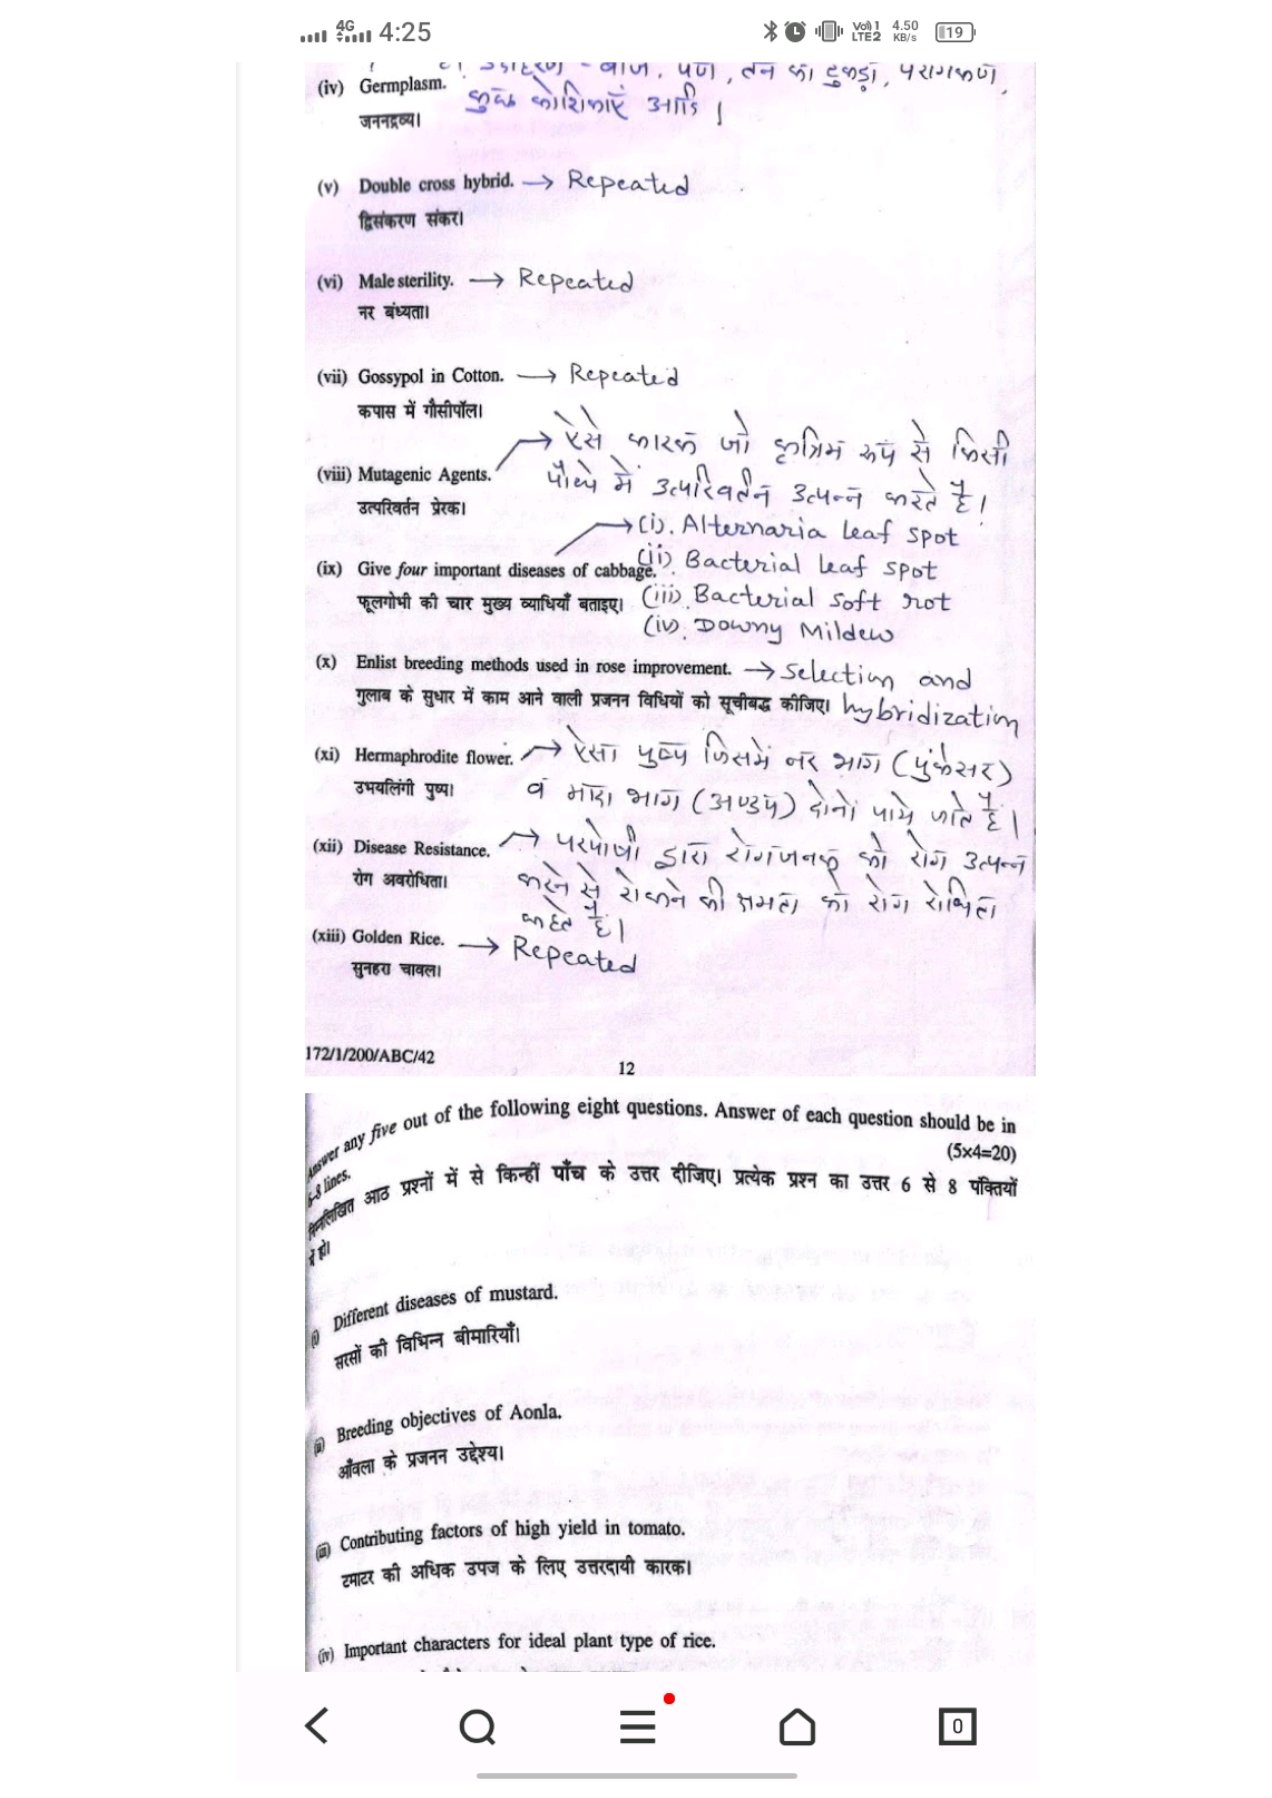 4G 4:25 Vo) 1 LTE2 4.50 KB/s 19
उदाहरण - बीज, पर्ण, तने का टुकड़ा, परागकण,
(iv) Germplasm. कुछ कोशिकाएँ आदि।
जननद्रव्य।
(v) Double cross hybrid. → Repeated
द्विसंकरण संकर।
(vi) Male sterility. → Repeated
नर बंध्यता।
(vii) Gossypol in Cotton. → Repeated
कपास में गौसीपॉल।
→ ऐसे कारक जो कृत्रिम रूप से किसी
(viii) Mutagenic Agents. पौधे में उत्परिवर्तन उत्पन्न करते है।
उत्परिवर्तन प्रेरक।
→ (i). Alternaria leaf spot
(ii) Bacterial leaf spot
(ix) Give four important diseases of cabbage.
फूलगोभी की चार मुख्य व्याधियाँ बताइए। (iii) Bacterial soft rot
(iv). Downy Mildew
(x) Enlist breeding methods used in rose improvement. → selection and
गुलाब के सुधार में काम आने वाली प्रजनन विधियों को सूचीबद्ध कीजिए। hybridization
(xi) Hermaphrodite flower. → ऐसा पुष्प जिसमें नर भाग (पुंकेसर)
उभयलिंगी पुष्प। व मादा भाग (अण्डप) दोनों पाये जाते है।
(xii) Disease Resistance. → परपोषी द्वारा रोगजनक को रोग उत्पन्न
रोग अवरोधिता। करने से रोकने की क्षमता को रोग रोधिता
कहते है।
(xiii) Golden Rice. → Repeated
सुनहरा चावल।
172/1/200/ABC/42
12
Answer any five out of the following eight questions. Answer of each question should be in
6-8 lines. (5x4=20)
निम्नलिखित आठ प्रश्नों में से किन्हीं पाँच के उत्तर दीजिए। प्रत्येक प्रश्न का उत्तर 6 से 8 पंक्तियों
में हो।
(i) Different diseases of mustard.
सरसों की विभिन्न बीमारियाँ।
(ii) Breeding objectives of Aonla.
आँवला के प्रजनन उद्देश्य।
(iii) Contributing factors of high yield in tomato.
टमाटर की अधिक उपज के लिए उत्तरदायी कारक।
(iv) Important characters for ideal plant type of rice.
0